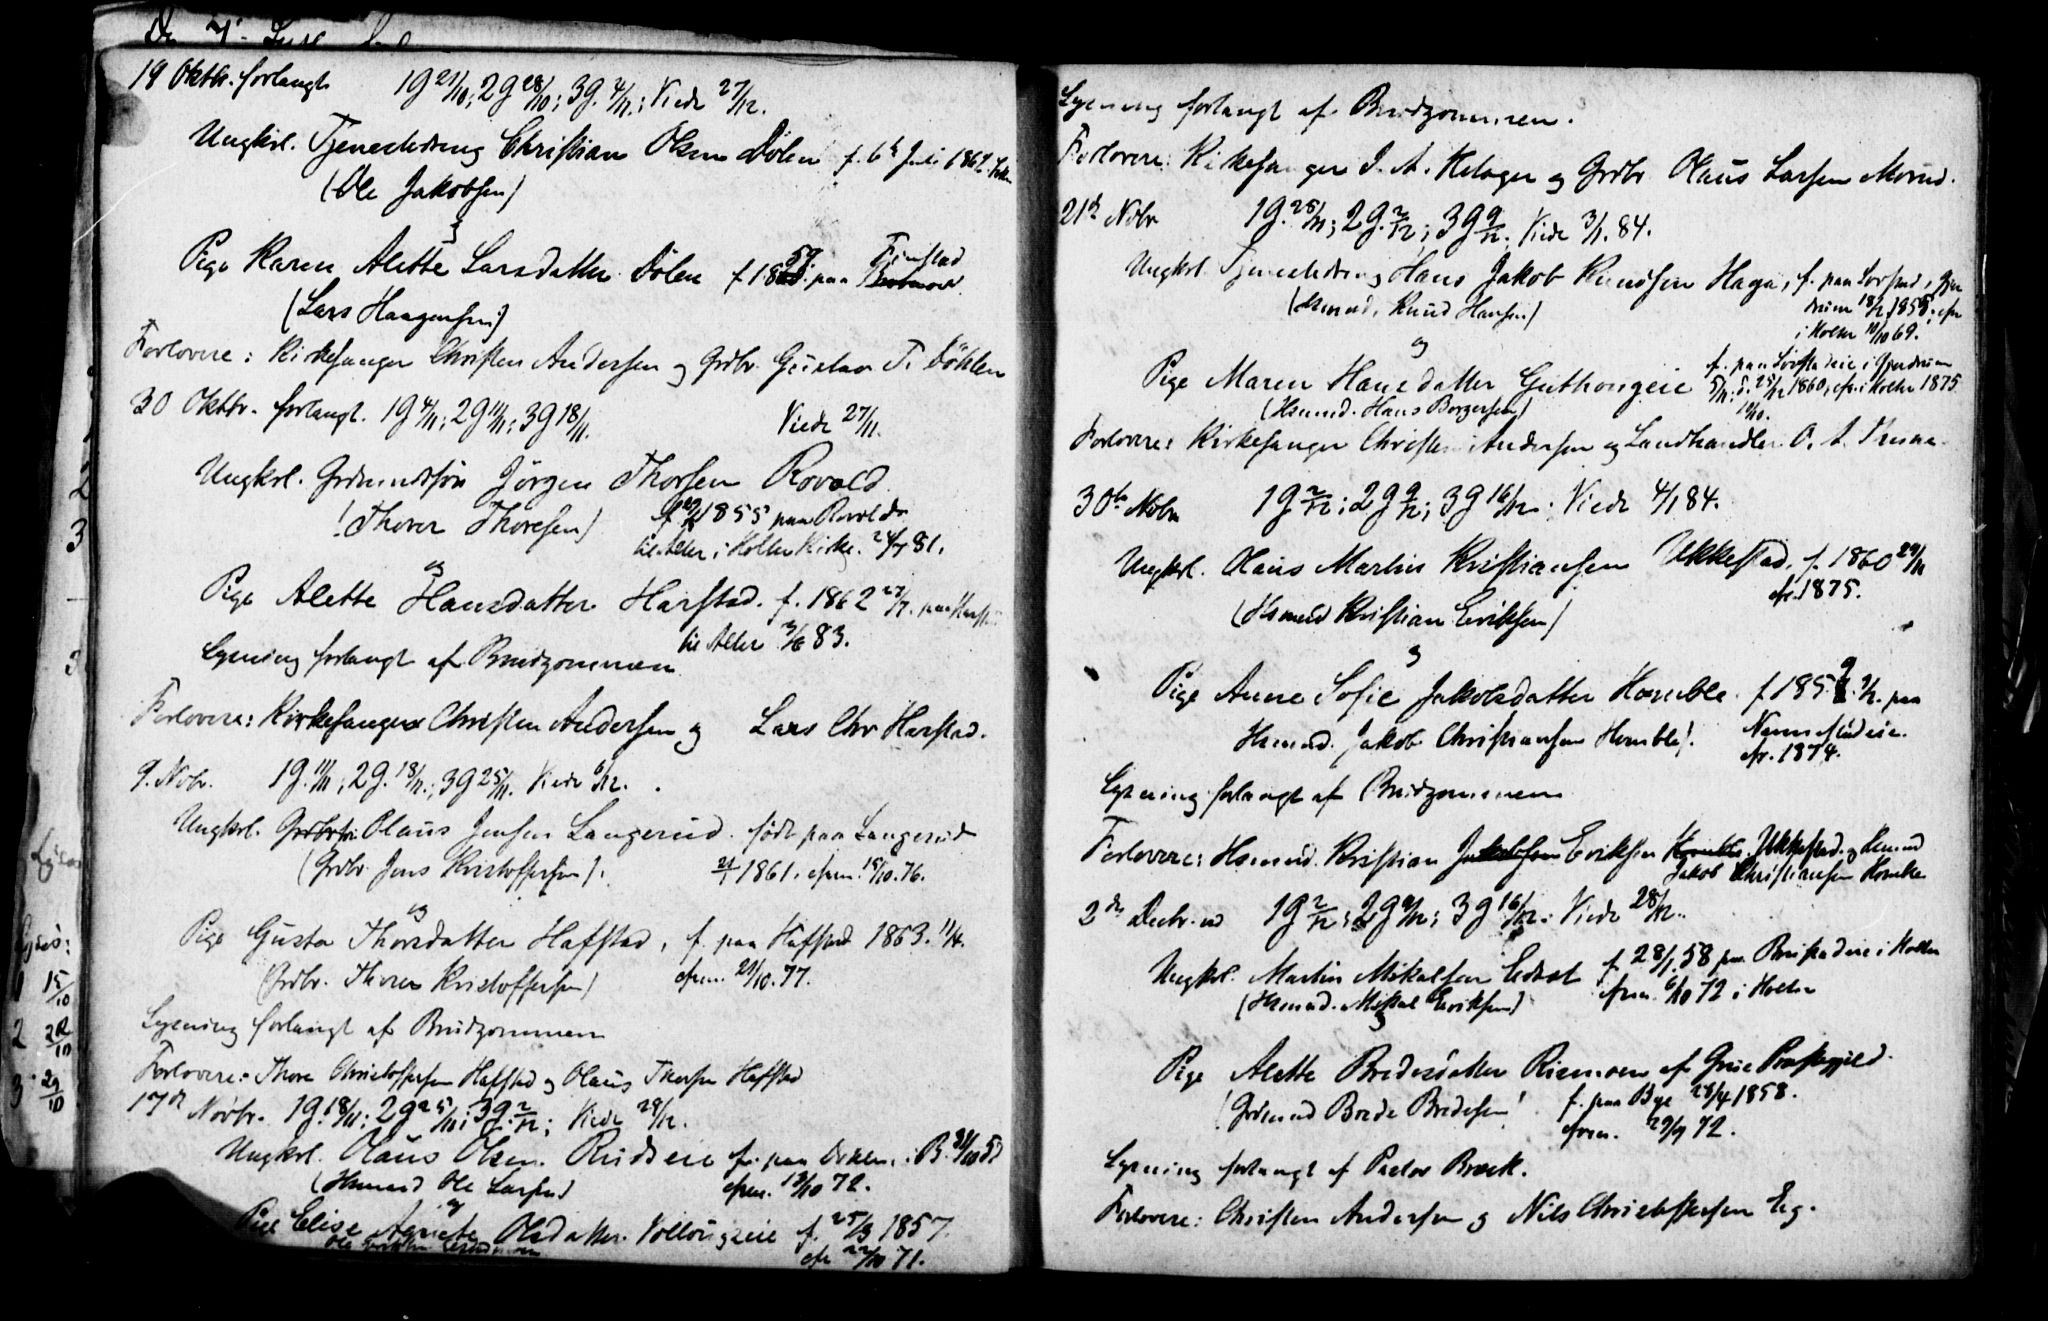 19 Oktbr. forlangt 1g 21/10; 2g 28/10; 3g. 4/11; Viede 27/12.
Ungkrl. Tjenestedreng Christian Olsen Dølen f. 6te Juli 1862
(Ole Jakobsen)
og
Pige Karen Alette Larsdatter Dølen f. 1859 paa Finstad
(Lars Haagensen)
Forlovere: Kirkesanger Christen Andersen og Grdbr. Gustav T. Döhlen
30 Oktbr. forlangt. 1g 4/11; 2g 11/11; 3g 18/11. Viede 27/11.
Ungkrl. Grdmandssøn Jörgen Thorsen Rovold
(Thorer Thoresen) 1855 paa Rovold
til Alter i Holter Kirke 81.
og
Pige Alette Hansdatter Harstad. f. 1862 paa Harstad
til Alter 3/6 83.
Lysning forlangt af Brudgommen
Forlovere: Kirkesanger Christen Andersen og Lars Chr Harstad.
9. Nobr. 1g. 11/11; 2g. 18/11; 3g 25/11. Viede 6/12.
Ungkrl. Olaus Jensen Langerud. født paa Langerud
(Grdbr. Jens Kristoffersen). 1861. 15/10.76.
og
Pige Gusta Thorsdatter Hafstad, f. paa Hafstad 1863. 11/4.
(Grdbr. Thorer Kristoffersen) 21/10.77.
Lysning forlangt af Brudgommen
Forlovere: Thore Christoffersen Hafstad og Olaus Thorsen Hafstad
17de Novbr. 1g. 18/11; 2g 25/11; 3g. 2/12; Viede 29/12.
Ungkrl. Olaus Olsen Rudseie f. paa
(Hsmand Ole Larsen) 13/10 72.
og
Pige Elise Agnete Olsdatter Vollaugseie f. 25/3 1857.
efr 22/10 71.
Lysning forlangt af Brudgommen.
Forlovere: Kirkesanger J. A. Helager og Grdbr. Olaus Larsen Morud.
21de Nobr 1g. 25/11; 2g. 2/12; 3g 9/12. Viede 3/1. 84.
Ungkrl. Tjenestedreng Hans Jakob Knudsen Haga, f. paa
(Hsmand. Knud Hansen) drum 18/2 1855.
i Holter 10/10 69.
og
Pige Maren Hansdatter Guthongeie f. paa i Gjerdrum
(Hsmand. Hans Borgersen) 1860, i Holter 1875
Forlovere: Kirkesanger Christen Andersen og Landhandler O. A.
30te Nobr 1g 2/12; 2g 9/12; 3g 16/12. Viede 4/1 84.
Ungkrl. Olaus Martin Kristiansen Ukkestad. f. 1860 29/11
efr. 1875.
(Hsmand Kristian Eriksen)
og
Pige Anne Sofie Jakobsdatter Homble f. 1859. paa
Hsmand. Jakob Christiansen Homble). Nannestadeie.
efr. 1874.
Lysning forlangt af Brudgommen
Forlovere: Hsmand. Kristian Jakobsen Eriksen Homble Ukkestad. og Hsmand
Jakob Christiansen Homble
2den Decbr. 1g 2/12; 2g 9/12; 3g 16/12. Viede 28/12.
Ungkrl. Martin Mikalsen f. 28/1.58 paa i Holter
(Hsmand. Mikal Eriksen) 6/10 72 i Holter
og
Pige Alette Bredesdatter Risemoen af Grue Præstegjeld.
(Grdmand Brede Bredesen) f. paa Bye 28/4 1858.
29/9 72.
Lysning forlangt af Pastor Brock.
Forlovere: Christen Andersen og Nils Christoffersen Eeg.